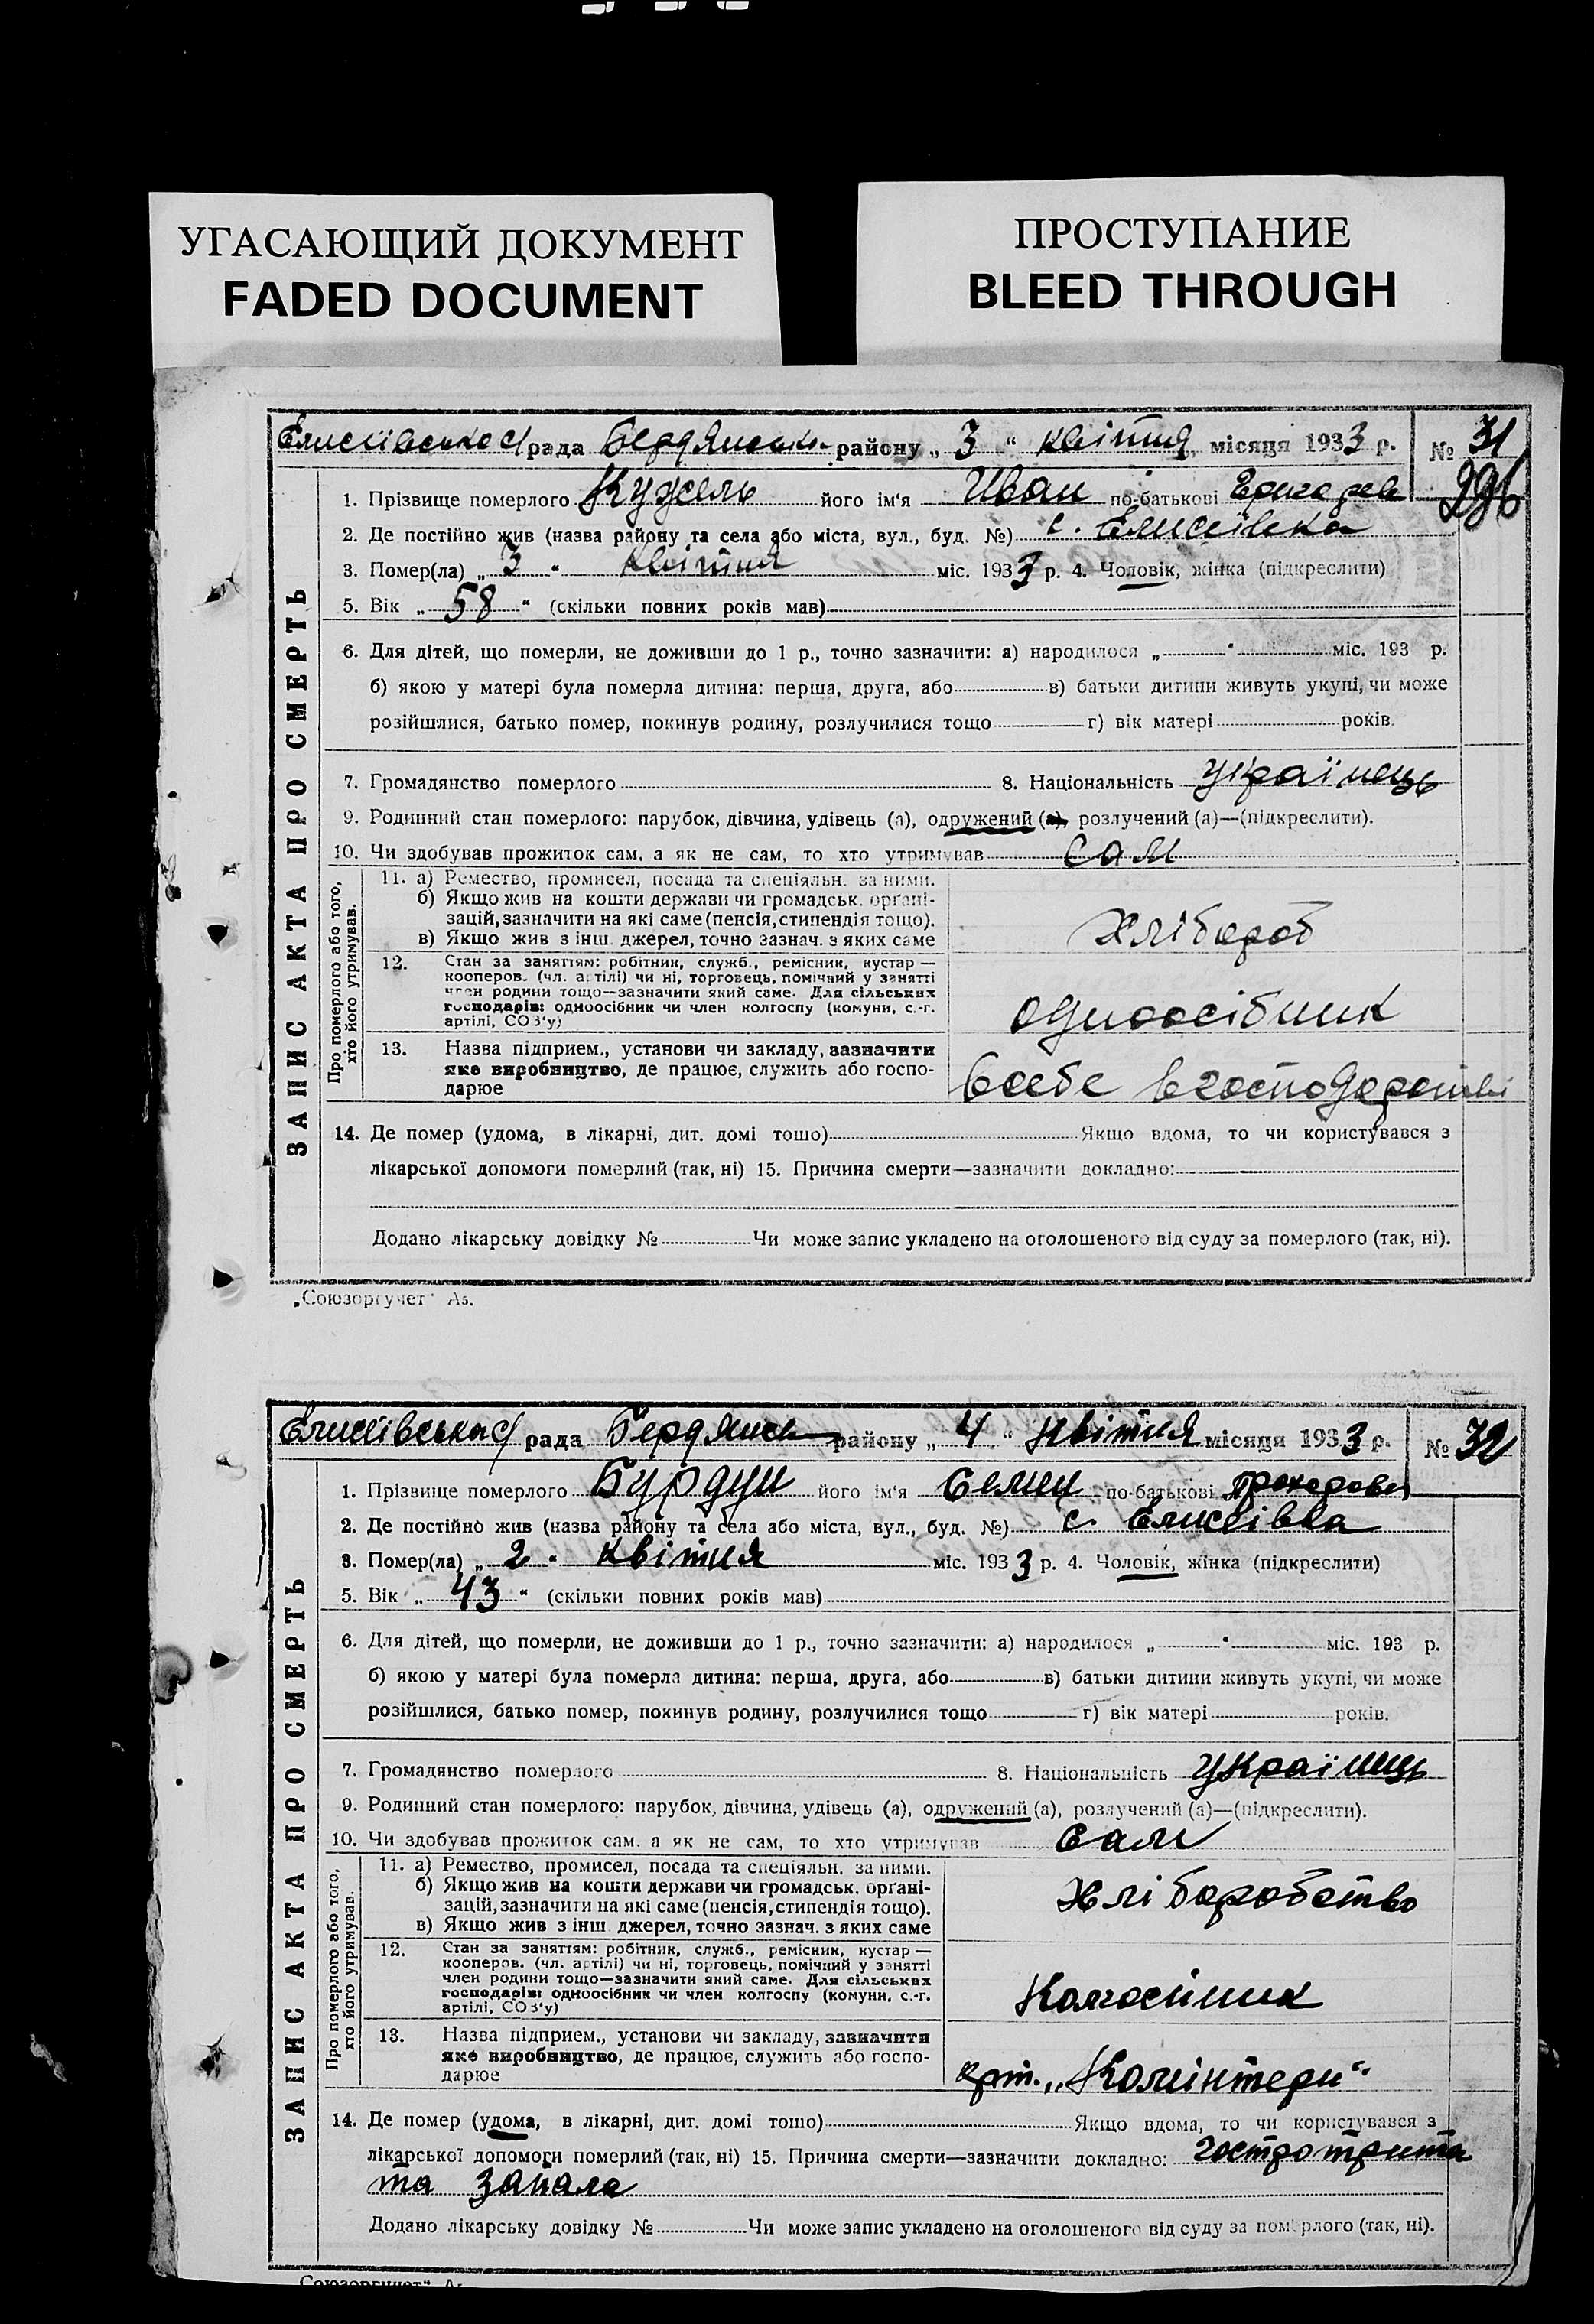 УГАСАЮЩИЙ ДОКУМЕНТ
FADED DOCUMENT
ПРОСТУПАНИЕ
BLEED THROUGH
ЗАПИС АКТА ПРО СМЕРТЬ
рада районy „ 3 “ квітня місяця 1933 р. № 31
296
1. Прізвище померлого Кужель його ім'я Иван по-батькові
2. Де постійно жив (назва району та села або міста, вул., буд. №) с. Елисіївка
3. Помер(ла) „ 3 “ квітня міс. 1933 р. 4. Чоловік, жінка (підкреслити)
5. Вік „ 58 “ (скільки повних років мав)
6. Для дітей, що померли, не доживши до 1 р., точно зазначити: а) народилося „ “ міс. 193 р.
б) якою у матері була померла дитина: перша, друга, або в) батьки дитини живуть укупі, чи може
розійшлися, батько помер, покинув родину, розлучилися тощо г) вік матері років.
7. Громадянство померлого 8. Національність україньць
9. Родинний стан померлого: парубок, дівчина, удівець (а), одружений (а), розлучений (а)—(підкреслити).
10. Чи здобував прожиток сам, а як не сам, то хто утримував сам
Про померлого або того, хто його утримував.
11. а) Ремество, промисел, посада та спеціяльн. за ними.
б) Якщо жив на кошти держави чи громадськ. орґані-
зацій, зазначити на які саме (пенсія, стипендія тощо).
в) Якщо жив з інш. джерел, точно зазнач. з яких саме
Хлібороб
12. Стан за заняттям: робітник, служб., ремісник, кустар —
кооперов. (чл. артілі) чи ні, торговець, помічний у занятті
член родини тощо—зазначити який саме. Для сільських
господарів: одноосібник чи член колгоспу (комуни, с.-г.
артілі, СОЗ'у)
одноосібник
13. Назва підприєм., установи чи закладу, зазначити
яке виробництво, де працює, служить або госпо-
дарює
в себе в господарстві
14. Де помер (удома, в лікарні, дит. домі тощо) Якщо вдома, то чи користувався з
лікарської допомоги померлий (так, ні) 15. Причина смерти—зазначити докладно:
Додано лікарську довідку № Чи може запис укладено на оголошеного від суду за померлого (так, ні).
„Союзоргучет“ Аз.
ЗАПИС АКТА ПРО СМЕРТЬ
рада району „ 4 “ квітня місяця 1933 р. № 32
1. Прізвище померлого Бурдун його ім'я Семен по-батькові
2. Де постійно жив (назва району та села або міста, вул., буд. №) с. Елисіївка
3. Помер(ла) „ 2 “ квітня міс. 1933 р. 4. Чоловік, жінка (підкреслити)
5. Вік „ 43 “ (скільки повних років мав)
6. Для дітей, що померли, не доживши до 1 р., точно зазначити: а) народилося „ “ міс. 193 р.
б) якою у матері була померла дитина: перша, друга, або в) батьки дитини живуть укупі, чи може
розійшлися, батько помер, покинув родину, розлучилися тощо г) вік матері років.
7. Громадянство померлого 8. Національність україниць
9. Родинний стан померлого: парубок, дівчина, удівець (а), одружений (а), розлучений (а)—(підкреслити).
10. Чи здобував прожиток сам, а як не сам, то хто утримував сам
Про померлого або того, хто його утримував.
11. а) Ремество, промисел, посада та спеціяльн. за ними.
б) Якщо жив на кошти держави чи громадськ. орґані-
зацій, зазначити на які саме (пенсія, стипендія тощо).
в) Якщо жив з інш. джерел, точно зазнач. з яких саме
Хлібороботво
12. Стан за заняттям: робітник, служб., ремісник, кустар —
кооперов. (чл. артілі) чи ні, торговець, помічний у занятті
член родини тощо—зазначити який саме. Для сільських
господарів: одноосібник чи член колгоспу (комуни, с.-г.
артілі, СОЗ'у)
13. Назва підприєм., установи чи закладу, зазначити
яке виробництво, де працює, служить або госпо-
дарює
арт. „Комінтерн“
14. Де помер (удома, в лікарні, дит. домі тощо) Якщо вдома, то чи користувався з
лікарської допомоги померлий (так, ні) 15. Причина смерти—зазначити докладно:
та
Додано лікарську довідку № Чи може запис укладено на оголошеного від суду за померлого (так, ні).